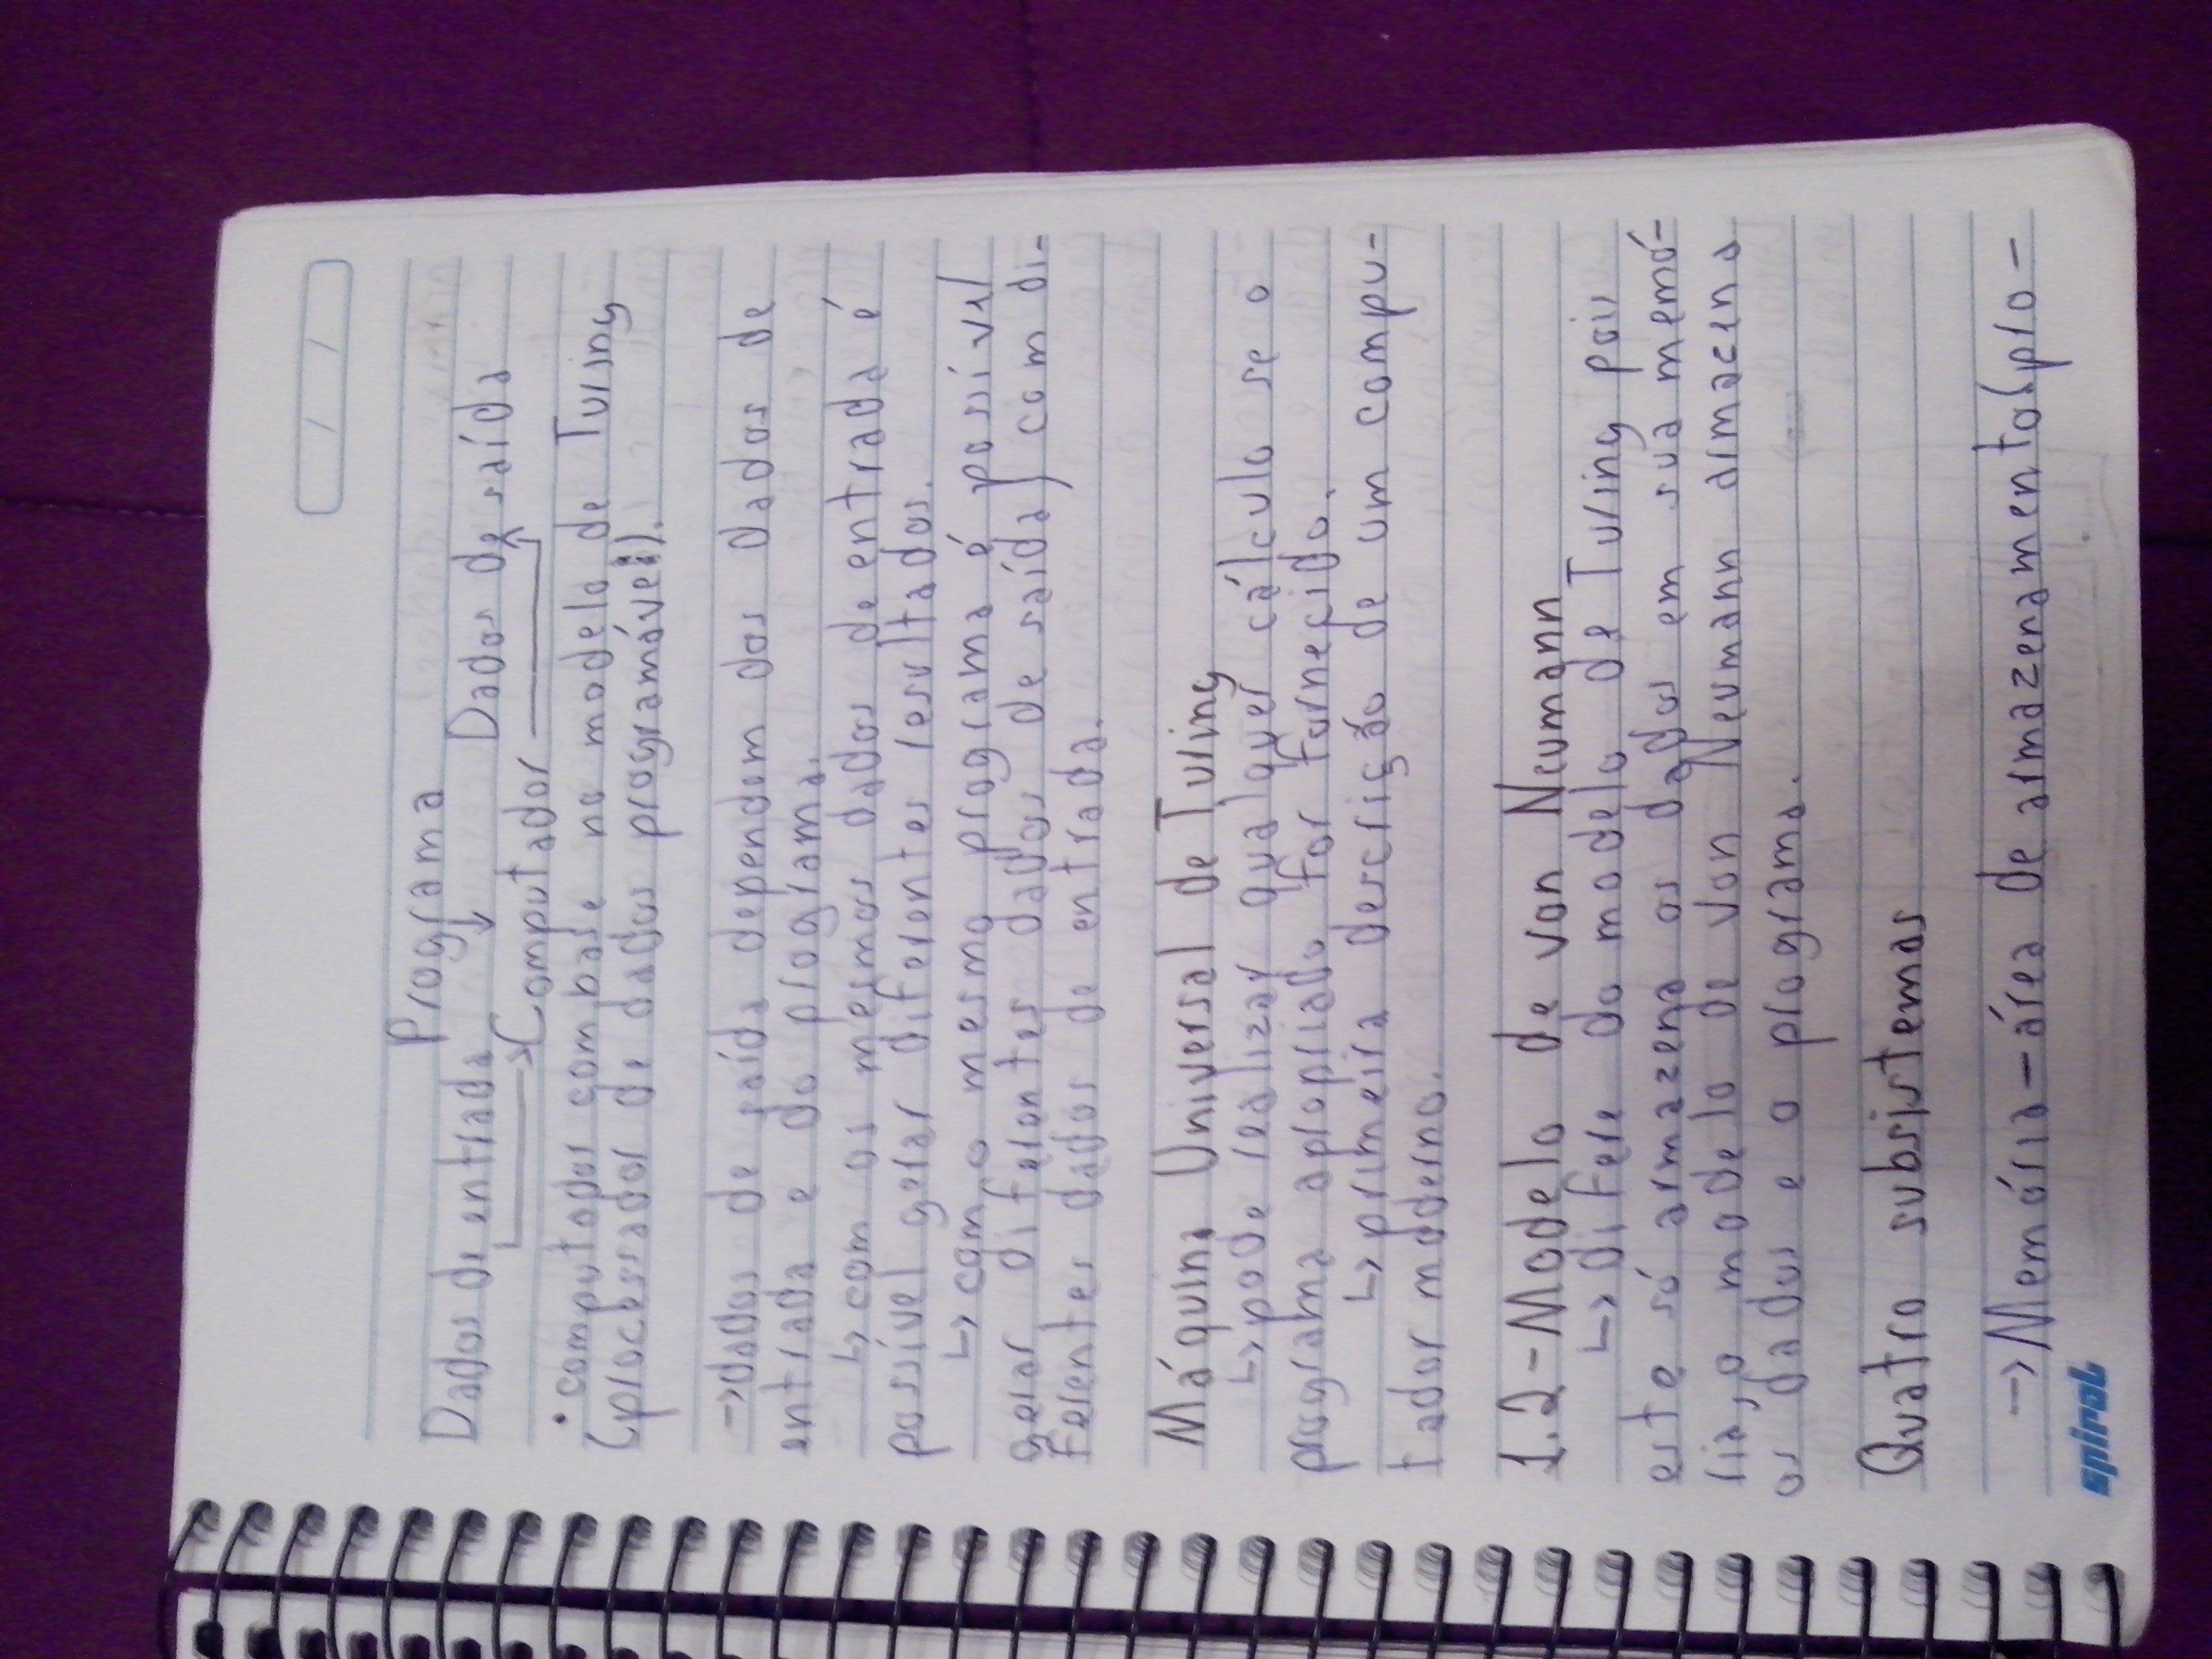 Programa
Dados de entrada ↓ Dados de saída
→ Computador
• computador com base no modelo de Turing
(processador de dados programável).
→ dados de saída dependem dos dados de
entrada e do programa.
↳ com os mesmos dados de entrada é
possível gerar diferentes resultados.
↳ com o mesmo programa é possível
gerar diferentes dados de saída, com di-
ferentes dados de entrada.
Máquina Universal de Turing
↳ pode realizar qualquer cálculo se o
programa apropriado for fornecido.
↳ primeira descrição de um compu-
tador moderno.
1.2 - Modelo de von Neumann
↳ difere do modelo de Turing pois
este só armazena os dados em sua memó-
ria, o modelo de von Neumann armacena
os dados e o programa.
Quatro subsistemas
→ Memória - área de armazenamento (pro-
spiral